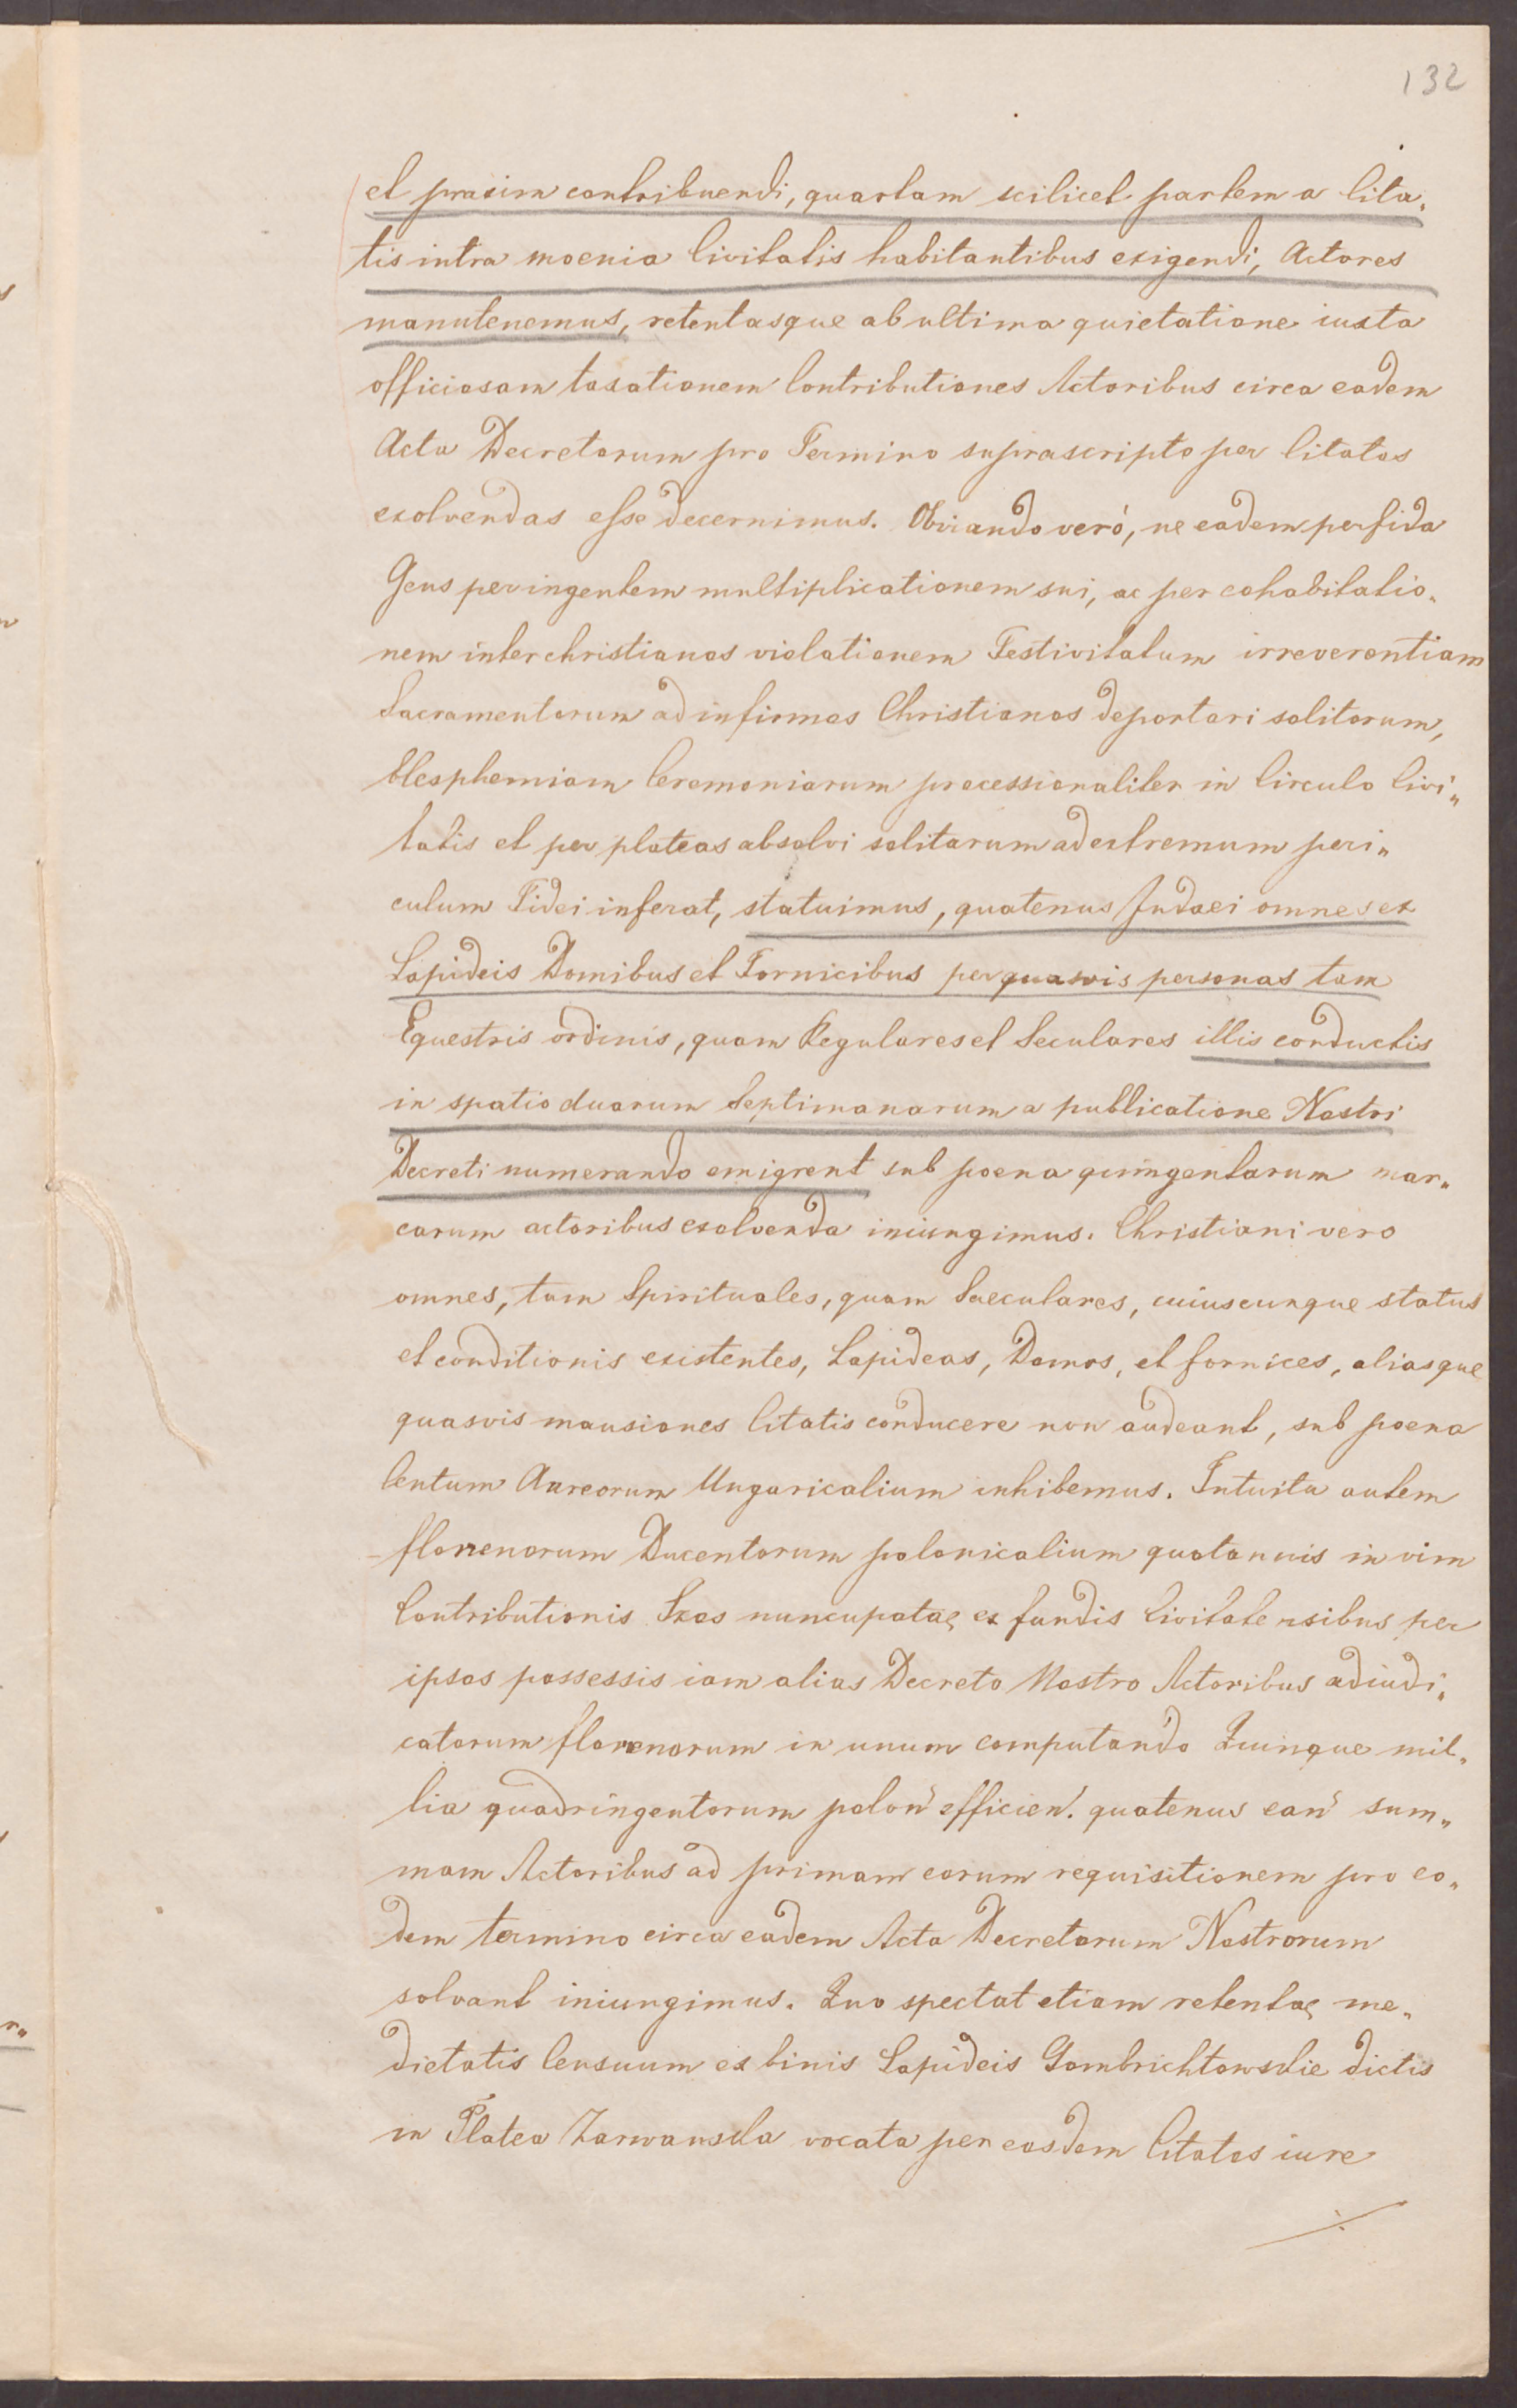 132
et praxim contribuendi, quartam scilicet partem a Cita„
tis intra moenia Civitatis habitantibus exigendi, Actores
manutenemus, retentasque ab ultima quietatione iuxta
officiosam taxationem Contributiones Actoribus circa eadem
Acta Decretorum pro Termino supra scripto per Citatos
exolvendas esse decernimus. Obviando veró, ne eadem perfida
Gens per ingentem multiplicationem sui, ac per cohabitatio„
nem inter christianos violationem Festivitatum irreverentiam
Sacramentorum ad infirmos Christianos deportari solitorum,
blasphemiam Ceremoniarum processionaliter in Circulo Civi„
tatis et per plateas absolvi solitarum ad extremum peri„
culum Fidei inferat, statuimus, quatenus Judaei omnes ex
Lapideis Domibus et Fornicibus per quasvis personas tam
Equestris ordinis, quam Regulares et Seculares illis conductis
in spatio duarum Septimanarum a publicatione Nostri
Decreti numerando emigrent sub poena quingentarum mar„
carum actoribus exolvenda iniungimus. Christiani vero
omnes, tam Spirituales, quam Saeculares, cuiuscunque status
et conditionis existentes, Lapideas, Domos, et fornices, aliasque
quasvis mansiones Citatis conducere non audeant, sub poena
Centum Aureorum Ungaricalium inhibemus. Intuitu autem
florenorum Ducentorum polonicalium quotannis in vim
Contributionis Szos nuncupatae ex fundis Civitatensibus per
ipsos possessis iam alias Decreto Nostro Actoribus adiudi„
catorum florenorum in unum computando Quinque mil„
lia quadringentorum polon̄ efficien̄. quatenus ean̄ sum„
mam Actoribus ad primam eorum requisitionem pro eo„
dem termino circa eadem Acta Decretorum Nostrorum
solvant iniungimus. Quo spectat etiam retentae me„
dietatis Censuum ex binis Lapideis Gombrichtowskie dictis
in Platea Zarwanska vocata per eosdem Citatos iure